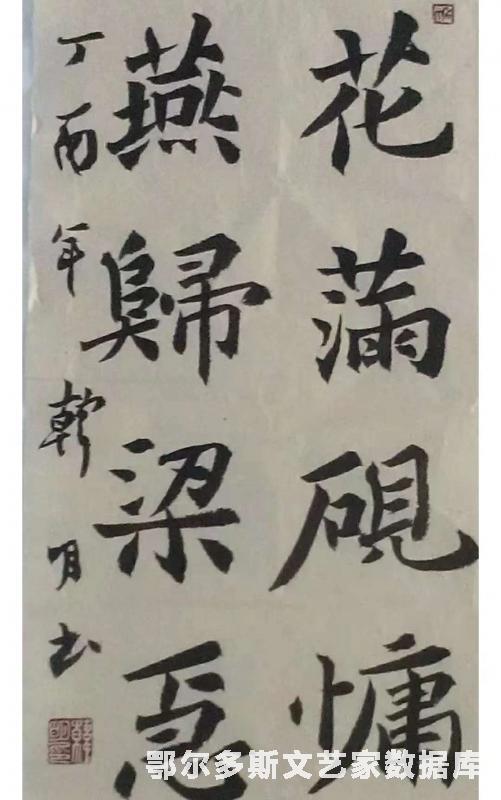 花滿硯慵
燕歸梁急
丁酉年 韓明书
鄂尔多斯文艺家数据库